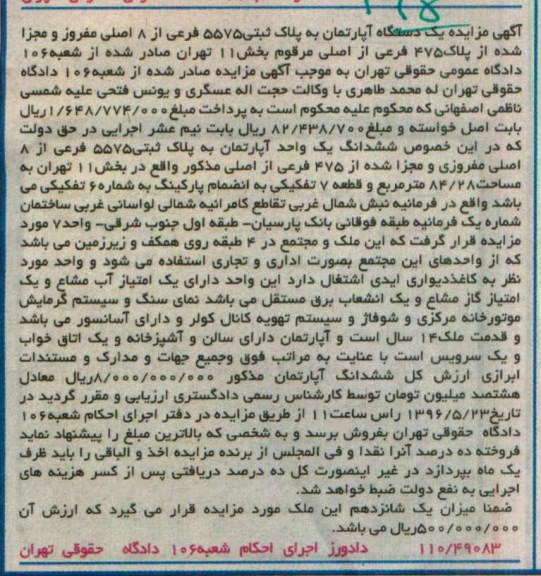 آگهی مزایده یک دستگاه آپارتمان به پلاک ثبتی۵۵۷۵ فرعی از ۸ اصلی مفروز و مجزا
شده از پلاک۴۷۵ فرعی از اصلی مرقوم بخش۱۱ تهران صادر شده از شعبه۱۰۶
دادگاه عمومی حقوقی تهران به موجب آگهی مزایده صادر شده از شعبه۱۰۶ دادگاه
حقوقی تهران له محمد طاهری با وکالت حجت اله عسگری و یونس فتحی علیه شمسی
ناظمی اصفهانی که محکوم علیه محکوم است به پرداخت مبلغ۱/۶۴۸/۷۷۴/۰۰۰ریال
بابت اصل خواسته و مبلغ۸۲/۴۳۸/۷۰۰ ریال بابت نیم عشر اجرایی در حق دولت
که در این خصوص ششدانگ یک واحد آپارتمان به پلاک ثبتی۵۵۷۵ فرعی از ۸
اصلی مفروزی و مجزا شده از ۴۷۵ فرعی از اصلی مذکور واقع در بخش۱۱ تهران به
مساحت۸۴/۲۸ مترمربع و قطعه ۷ تفکیکی به انضمام پارکینگ به شماره۶ تفکیکی می
باشد واقع در فرمانیه نبش شمال غربی تقاطع کامرانیه شمالی لواسانی غربی ساختمان
شماره یک فرمانیه طبقه فوقانی بانک پارسیان- طبقه اول جنوب شرقی- واحد۷ مورد
مزایده قرار گرفت که این ملک و مجتمع در ۴ طبقه روی همکف و زیرزمین می باشد
که از واحدهای این مجتمع بصورت اداری و تجاری استفاده می شود و واحد مورد
نظر به کاغذدیواری ایدی اشتغال دارد این واحد دارای یک امتیاز آب مشاع و یک
امتیاز گاز مشاع و یک انشعاب برق مستقل می باشد نمای سنگ و سیستم گرمایش
موتورخانه مرکزی و شوفاژ و سیستم تهویه کانال کولر و دارای آسانسور می باشد
و قدمت ملک۱۴ سال است و آپارتمان دارای سالن و آشپزخانه و یک اتاق خواب
و یک سرویس است با عنایت به مراتب فوق وجمیع جهات و مدارک و مستندات
ابرازی ارزش کل ششدانگ آپارتمان مذکور ۸/۰۰۰/۰۰۰/۰۰۰ریال معادل
هشتصد میلیون تومان توسط کارشناس رسمی دادگستری ارزیابی و مقرر گردید در
تاریخ۱۳۹۶/۵/۲۳ راس ساعت۱۱ از طریق مزایده در دفتر اجرای احکام شعبه۱۰۶
دادگاه حقوقی تهران بفروش برسد و به شخصی که بالاترین مبلغ را پیشنهاد نماید
فروخته ده درصد آنرا نقدا و فی المجلس از برنده مزایده اخذ و الباقی را باید ظرف
یک ماه بپردازد در غیر اینصورت کل ده درصد دریافتی پس از کسر هزینه های
اجرایی به نفع دولت ضبط خواهد شد.
ضمنا میزان یک شانزدهم این ملک مورد مزایده قرار می گیرد که ارزش آن
۵۰۰/۰۰۰/۰۰۰ریال می باشد.
۱۱۰/۴۹۰۸۳ دادورز اجرای احکام شعبه۱۰۶ دادگاه حقوقی تهران